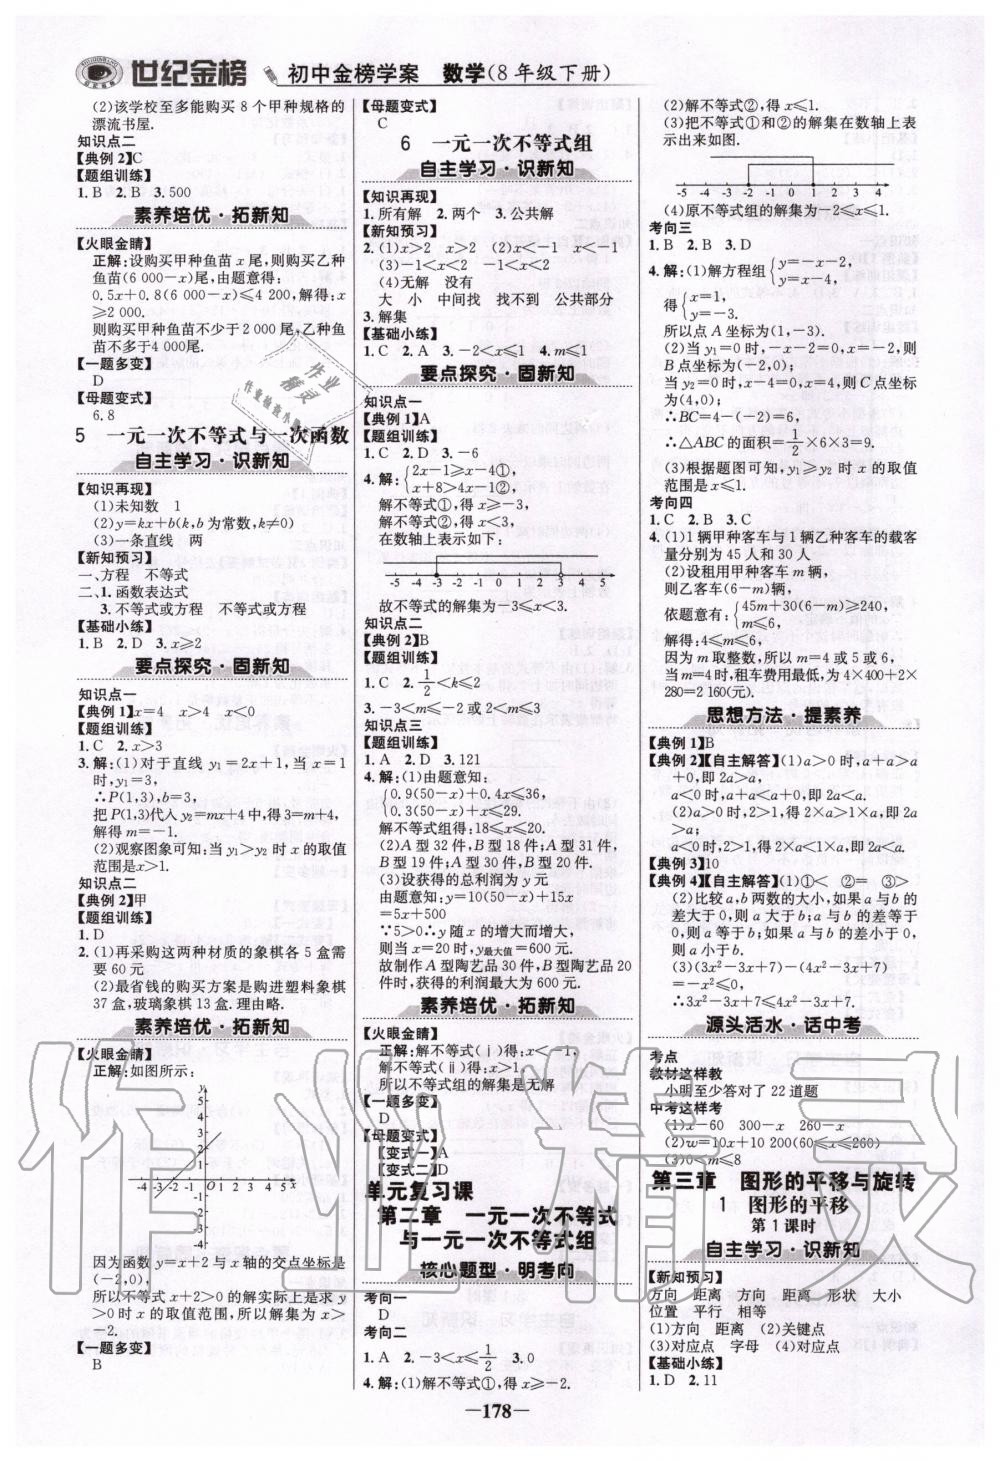 世纪金榜 初中金榜学案 数学(8年级下册)
(2)该学校至多能购买8个甲种规格的
漂流书屋.
知识点二
【典例2】C
【题组训练】
1.B 2.B 3.500
素养培优·拓新知
【火眼金睛】
正解:设购买甲种鱼苗x尾,则购买乙种
鱼苗(6 000-x)尾,由题意得:
0.5x+0.8(6 000-x)≤4 200,解得:x
≥2 000.
则购买甲种鱼苗不少于2 000尾,乙种鱼
苗不多于4 000尾.
【一题多变】
D
【母题变式】
6.8
5 一元一次不等式与一次函数
自主学习·识新知
【知识再现】
(1)未知数 1
(2)y=kx+b(k,b为常数,k≠0)
(3)一条直线 两
【新知预习】
一、方程 不等式
二、1.函数表达式
3.不等式或方程 不等式或方程
【基础小练】
1.B 2.D 3.x≥2
要点探究·固新知
知识点一
【典例1】x=4 x>4 x<0
【题组训练】
1.C 2.x>3
3.解:(1)对于直线y₁=2x+1,当x=1
时,y₁=3,
∴P(1,3),b=3,
把P(1,3)代入y₂=mx+4中,得3=m+4,
解得m=-1.
(2)观察图象可知:当y₁>y₂时x的取值
范围是x>1.
知识点二
【典例2】甲
【题组训练】
1.D
2.(1)再采购这两种材质的象棋各5盒需
要60元.
(2)最省钱的购买方案是购进塑料象棋
37盒,玻璃象棋13盒.理由略.
素养培优·拓新知
【火眼金睛】
正解:如图所示:
y
4
3
2
1
-4 -3 -2 -1 O 1 2 3 4 5 x
-1
-2
-3
-4
因为函数y=x+2与x轴的交点坐标是
(-2,0),
所以不等式x+2>0的解实际上是求y
>0时x的取值范围,所以解集为x>
-2.
【一题多变】
B
【母题变式】
C
6 一元一次不等式组
自主学习·识新知
【知识再现】
1.所有解 2.两个 3.公共解
【新知预习】
2.(1)x>2 x>2 (2)x<-1 x<-1
(3)-1<x<2 -1<x<2
(4)无解 没有
大 小 中间找 找不到 公共部分
3.解集
【基础小练】
1.C 2.A 3.-2<x≤1 4.m≤1
要点探究·固新知
知识点一
【典例1】A
【题组训练】
1.C 2.D 3.-6
4.解:{2x-1≥x-4①,
x+8>4x-1②,
解不等式①,得x≥-3,
解不等式②,得x<3,
在数轴上表示如下:
-5 -4 -3 -2 -1 0 1 2 3 4 5
故不等式的解集为-3≤x<3.
知识点二
【典例2】B
【题组训练】
1.C 2.1/2<k≤2
3.-3<m≤-2或2<m≤3
知识点三
【题组训练】
1.A 2.D 3.121
4.解:(1)由题意知:
{0.9(50-x)+0.4x≤36,
0.3(50-x)+x≤29.
解不等式组得:18≤x≤20.
(2)A型32件,B型18件;A型31件,
B型19件;A型30件,B型20件.
(3)设获得的总利润为y元
由题意知:y=10(50-x)+15x
=5x+500
∵5>0∴y随x的增大而增大,
则当x=20时,y最大值=600元.
故制作A型陶艺品30件,B型陶艺品20
件时,获得的利润最大为600元.
素养培优·拓新知
【火眼金睛】
正解:解不等式(ⅰ)得:x<-1,
解不等式(ⅱ)得:x>1,
所以不等式组的解集是无解
【一题多变】
D
【母题变式】
【变式一】A
【变式二】D
单元复习课
第二章 一元一次不等式
与一元一次不等式组
核心题型·明考向
考向一
D
考向二
1.A 2.-3<x≤1/2 3.0
4.解:(1)解不等式①,得x≥-2.
(2)解不等式②,得x≤1.
(3)把不等式①和②的解集在数轴上表
示出来如图.
-4 -3 -2 -1 0 1 2 3 4
(4)原不等式组的解集为-2≤x≤1.
考向三
1.B 2.B 3.D
4.解:(1)解方程组{y=-x-2,
y=x-4,
得{x=1,
y=-3.
所以点A坐标为(1,-3).
(2)当y₁=0时,-x-2=0,x=-2,则
B点坐标为(-2,0);
当y₂=0时,x-4=0,x=4,则C点坐标
为(4,0);
∴BC=4-(-2)=6,
∴△ABC的面积=1/2×6×3=9.
(3)根据题图可知,y₁≥y₂时x的取值
范围是x≤1.
考向四
1.C 2.B 3.C
4.(1)1辆甲种客车与1辆乙种客车的载客
量分别为45人和30人.
(2)设租用甲种客车m辆,
则乙客车(6-m)辆,
依题意有:{45m+30(6-m)≥240,
m≤6,
解得:4≤m≤6,
因为m取整数,所以m=4或5或6,
当m=4时,租车费用最低,为4×400+2×
280=2 160(元).
思想方法·提素养
【典例1】B
【典例2】【自主解答】(1)a>0时,a+a>a
+0,即2a>a,
a<0时,a+a<a+0,即2a<a.
(2)a>0时,2>1,得2×a>1×a,即2a
>a;
a<0时,2>1,得2×a<1×a,即2a<a.
【典例3】10
【典例4】【自主解答】(1)①< ②= ③>
(2)比较a,b两数的大小,如果a与b的
差大于0,则a大于b;a与b的差等于
0,则a等于b;如果a与b的差小于0,
则a小于b.
(3)(3x²-3x+7)-(4x²-3x+7)
=-x²≤0,
∴3x²-3x+7≤4x²-3x+7.
源头活水·话中考
考点
教材这样教
小明至少答对了22道题
中考这样考
(1)x-60 300-x 260-x
(2)w=10x+10 200(60≤x≤260)
(3)0<m≤8
第三章 图形的平移与旋转
1 图形的平移
第1课时
自主学习·识新知
【新知预习】
方向 距离 方向 距离 形状 大小
位置 平行 相等
(1)方向 距离 (2)关键点
(3)对应点 字母 (4)对应点
【基础小练】
1.D 2.11
—178—
作业精灵